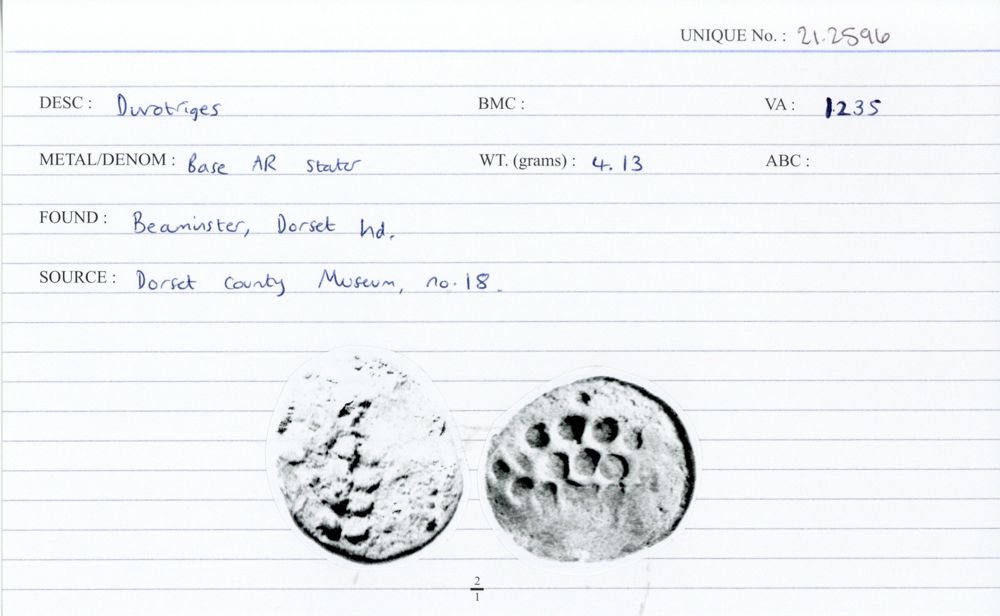 UNIQUE No. : 21.2596
DESC : Durotriges BMC : VA : 1235
METAL/DENOM : Base AR stater WT. (grams) : 4.13 ABC :
FOUND : Beaminster, Dorset hd.
SOURCE : Dorset County Museum, no. 18.
2
1